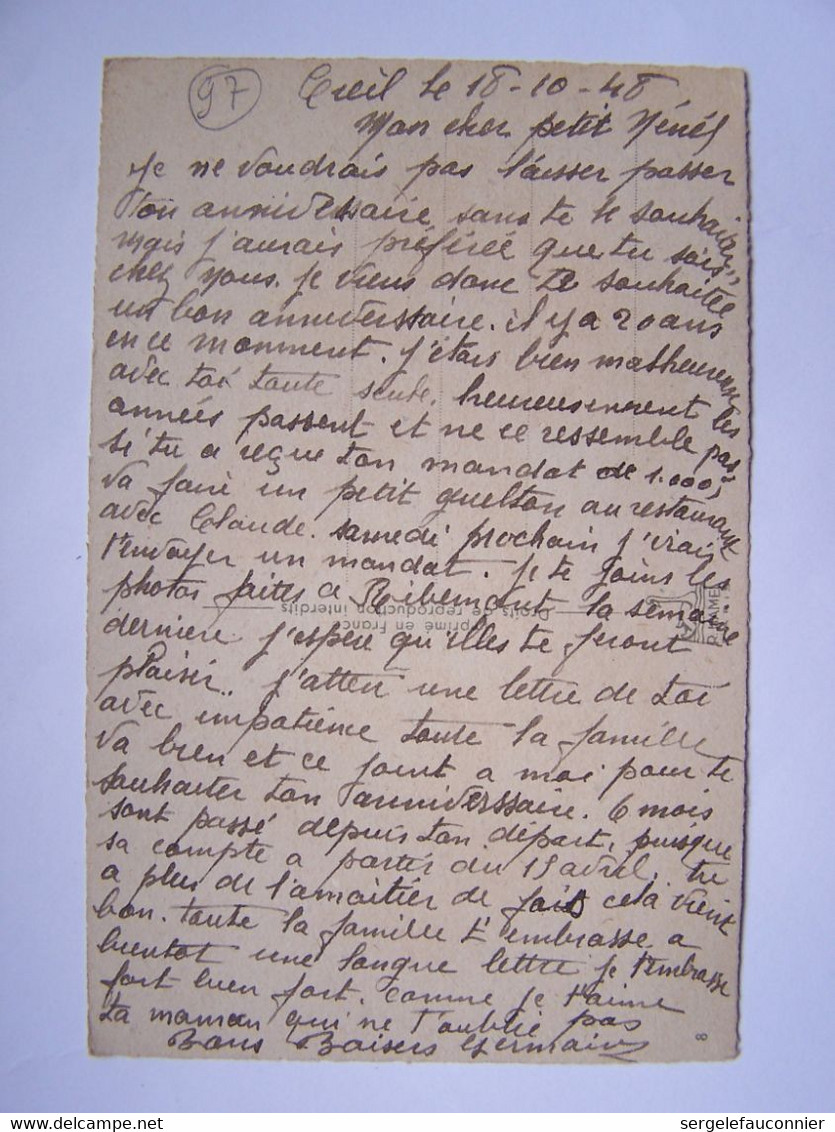 97
Creil le 18-10-48
Mon cher petit
Je ne voudrais pas laisser passer
ton anniverssaire sans te le souhaiter
mais j'aurais préférée que tu sois
chez nous. je viens donc te souhaitée
un bon anniverssaire. il y a 20 ans
en ce momment. j'étais bien malheureuse
avec toi toute seule. heureusement les
années passent et ne ce ressemble pas
si tu a reçue ton mandat de 1.000
va faire un petit gueleton au restaurant
avec Claude. samedi prochain j'irais
t'envoyer un mandat. Je te joins les
photos faites a Ribemont la semaine
derniere j'espere qu'illes te feront
plaisir.. j'atten une lettre de toi
avec impatience toute la famille
va bien et ce joint a moi pour te
souhaiter ton anniverssaire. 6 mois
sont passé depuis ton départ, puisque
sa compte a partir du 15 avril. tu
a plus de l'amoitier de fait cela vient
bon. toute la famille t'embrasse a
bientot une longue lettre je t'embrasse
fort bien fort. comme je t'aime
ta maman qui ne t'oublie pas
Bons Baisers Germaine
Imprimé en France
Droits de reproduction interdits
8
sergelefauconnier